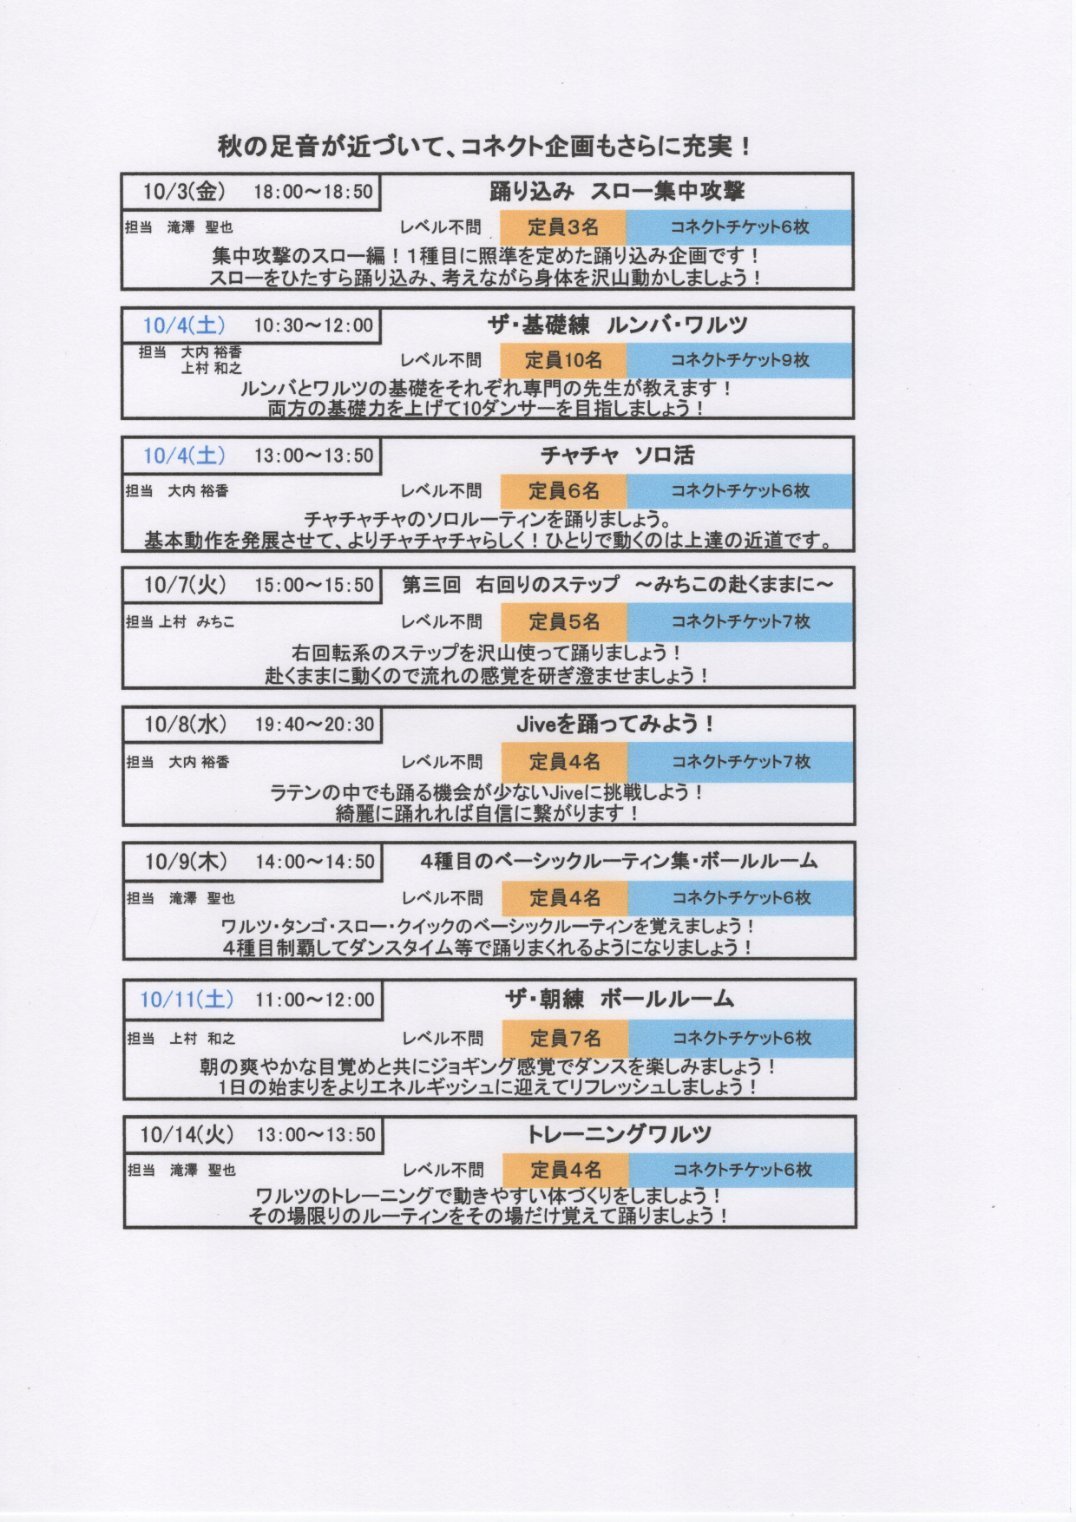 秋の足音が近づいて、コネクト企画もさらに充実！
10/3(金) 18:00～18:50 踊り込み スロー集中攻撃
担当 滝澤 聖也 レベル不問 定員3名 コネクトチケット6枚
集中攻撃のスロー編！1種目に照準を定めた踊り込み企画です！
スローをひたすら踊り込み、考えながら身体を沢山動かしましょう！
10/4(土) 10:30～12:00 ザ・基礎練 ルンバ・ワルツ
担当 大内 裕香 レベル不問 定員10名 コネクトチケット9枚
上村 和之
ルンバとワルツの基礎をそれぞれ専門の先生が教えます！
両方の基礎力を上げて10ダンサーを目指しましょう！
10/4(土) 13:00～13:50 チャチャ ソロ活
担当 大内 裕香 レベル不問 定員6名 コネクトチケット6枚
チャチャチャのソロルーティンを踊りましょう。
基本動作を発展させて、よりチャチャチャらしく！ひとりで動くのは上達の近道です。
10/7(火) 15:00～15:50 第三回 右回りのステップ ～みちこの赴くままに～
担当 上村 みちこ レベル不問 定員5名 コネクトチケット7枚
右回転系のステップを沢山使って踊りましょう！
赴くままに動くので流れの感覚を研ぎ澄ませましょう！
10/8(水) 19:40～20:30 Jiveを踊ってみよう！
担当 大内 裕香 レベル不問 定員4名 コネクトチケット7枚
ラテンの中でも踊る機会が少ないJiveに挑戦しよう！
綺麗に踊れれば自信に繋がります！
10/9(木) 14:00～14:50 4種目のベーシックルーティン集・ボールルーム
担当 滝澤 聖也 レベル不問 定員4名 コネクトチケット6枚
ワルツ・タンゴ・スロー・クイックのベーシックルーティンを覚えましょう！
4種目制覇してダンスタイム等で踊りまくれるようになりましょう！
10/11(土) 11:00～12:00 ザ・朝練 ボールルーム
担当 上村 和之 レベル不問 定員7名 コネクトチケット6枚
朝の爽やかな目覚めと共にジョギング感覚でダンスを楽しみましょう！
1日の始まりをよりエネルギッシュに迎えてリフレッシュしましょう！
10/14(火) 13:00～13:50 トレーニングワルツ
担当 滝澤 聖也 レベル不問 定員4名 コネクトチケット6枚
ワルツのトレーニングで動きやすい体づくりをしましょう！
その場限りのルーティンをその場だけ覚えて踊りましょう！